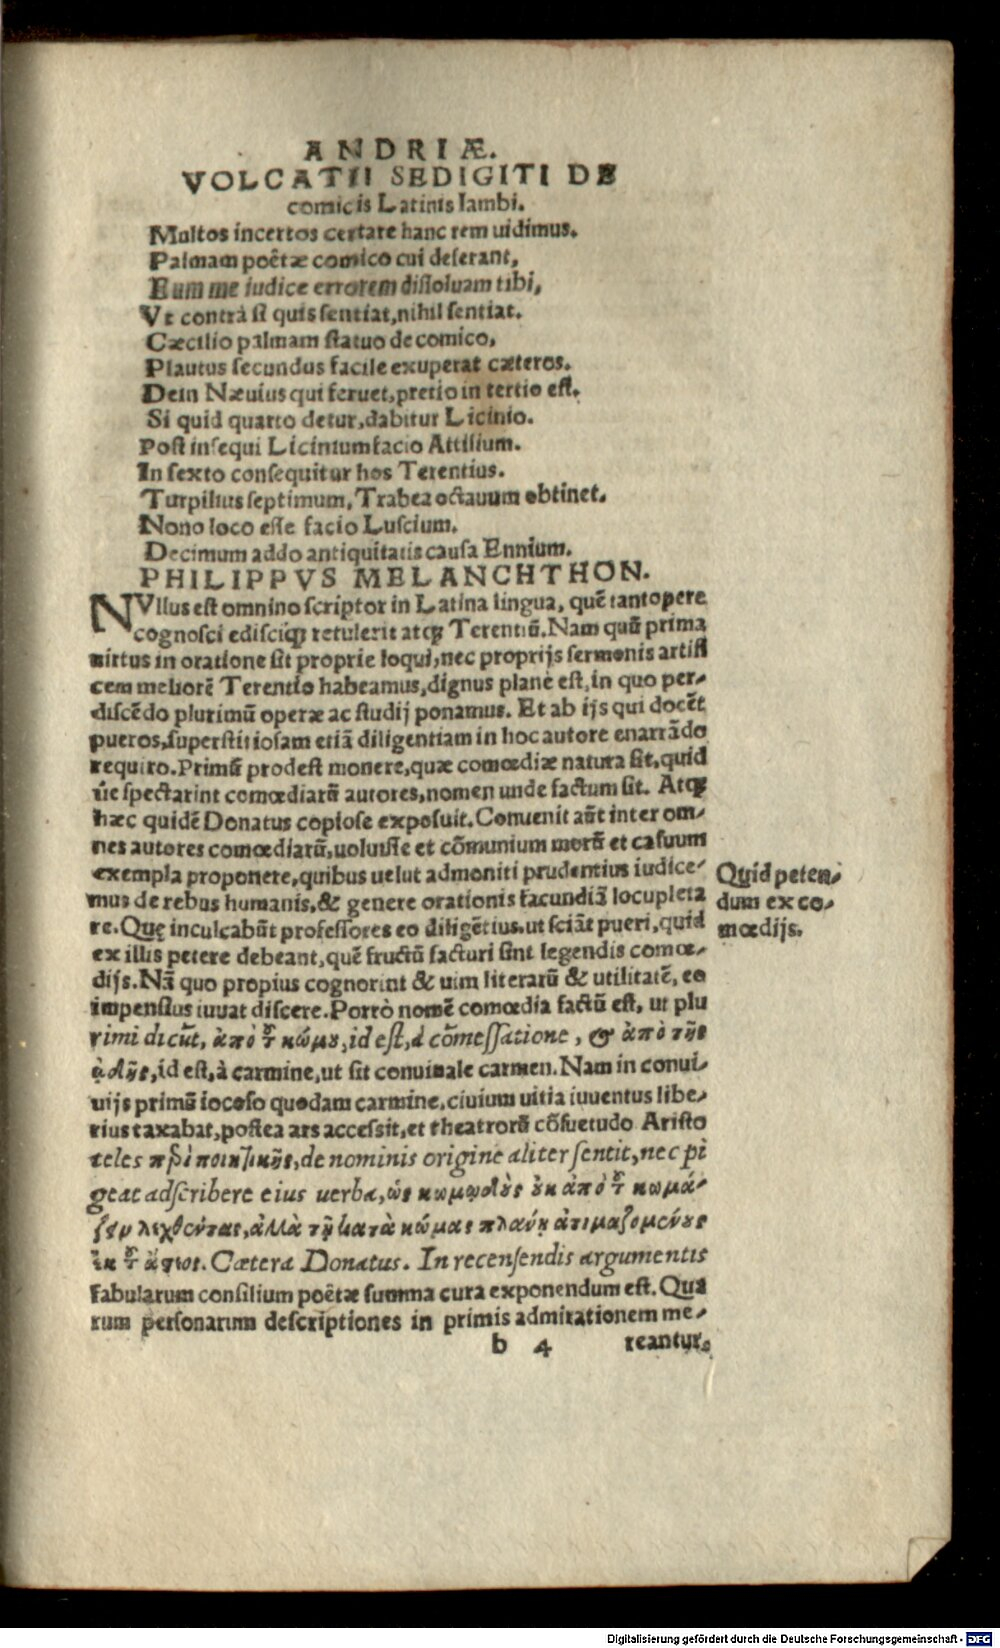 ANDRIÆ.
VOLCATII SEDIGITI DE
comicis Latinis Iambi.
Multos incertos certare hanc rem uidimus.
Palmam poêtæ comico cui deferant,
Eum me iudice errorem dissoluam tibi,
Vt contrà si quis sentiat, nihil sentiat.
Cæcilio palmam statuo de comico,
Plautus secundus facile exuperat cæteros.
Dein Næuius qui feruet, pretio in tertio est.
Si quid quarto detur, dabitur Licinio.
Post insequi Licinium facio Attilium.
In sexto consequitur hos Terentius.
Turpilius septimum, Trabea octauum obtinet.
Nono loco esse facio Luscium.
Decimum addo antiquitatis causa Ennium.
PHILIPPVS MELANCHTHON.
NVllus est omnino scriptor in Latina lingua, quē tantopere
cognosci edisciq̃ retulerit atq̃ Terentiū. Nam quū prima
uirtus in oratione sit proprie loqui, nec proprijs sermonis artifi
cem meliorē Terentio habeamus, dignus planè est, in quo per-
discēdo plurimū operæ ac studij ponamus. Et ab ijs qui docēt
pueros, superstitiosam etiā diligentiam in hoc autore enarrādo
requiro. Primū prodest monere, quæ comœdiæ natura sit, quid
ue spectarint comœdiarū autores, nomen unde factum sit. Atq̃
hæc quidē Donatus copiose exposuit. Conuenit aūt inter om-
nes autores comœdiarū, uoluisse et cōmunium morū et casuum
exempla proponere, quibus uelut admoniti prudentius iudice-
mus de rebus humanis, & genere orationis facundiā locupleta
re. Quę inculcabūt professores eo diligētius. ut sciāt pueri, quid
ex illis petere debeant, quē fructū facturi sint legendis comœ-
dijs. Nā quo propius cognorint & uim literarū & utilitatē, eo
impensius iuuat discere. Porrò nomē comœdia factū est, ut plu
rimi dicūt, ἀπὸ τ͂ κώμου, id est, à cōmessatione, & ἀπὸ τῆς
ᾠδῆς, id est, à carmine, ut sit conuiuale carmen. Nam in conui-
uijs primū iocoso quodam carmine, ciuium uitia iuuentus libe-
rius taxabat, postea ars accessit, et theatrorū cōsuetudo Aristo
teles περὶ ποιητικῆς, de nominis origine aliter sentit, nec pi
geat adscribere eius uerba, ὡς κωμῳδοὺς οὐκ ἀπὸ τ͂ κωμά-
ζειν λεχθέντας, ἀλλὰ τῇ κατὰ κώμας πλάνῃ ἀτιμαζομένους
ἐκ τ͂ ἄστεος. Cætera Donatus. In recensendis argumentis
fabularum consilium poêtæ summa cura exponendum est. Qua
rum personarum descriptiones in primis admirationem me-
b 4 reantur.
Quid peten-
dum ex co-
mœdijs.
Digitalisierung gefördert durch die Deutsche Forschungsgemeinschaft - DFG